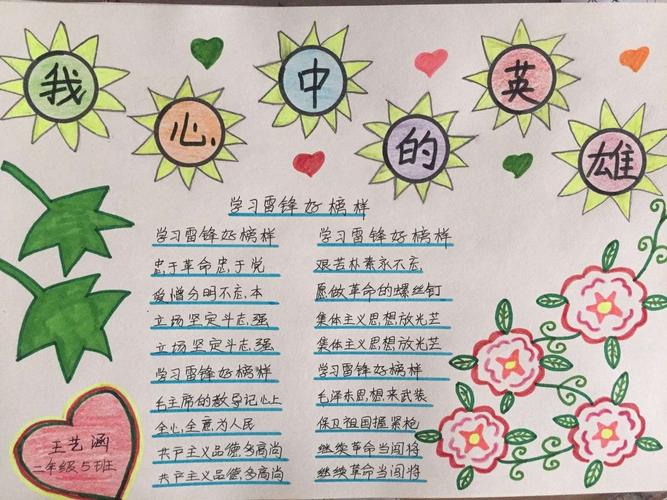 我心中的英雄
学习雷锋好榜样
学习雷锋好榜样
忠于革命忠于党
爱憎分明不忘本
立场坚定斗志强
立场坚定斗志强
学习雷锋好榜样
毛主席的教导记心上
全心全意为人民
共产主义品德多高尚
共产主义品德多高尚
学习雷锋好榜样
艰苦朴素永不忘
愿做革命的螺丝钉
集体主义思想放光芒
集体主义思想放光芒
学习雷锋好榜样
毛泽东思想来武装
保卫祖国握紧枪
继续革命当闯将
继续革命当闯将
王艺涵
二年级5班